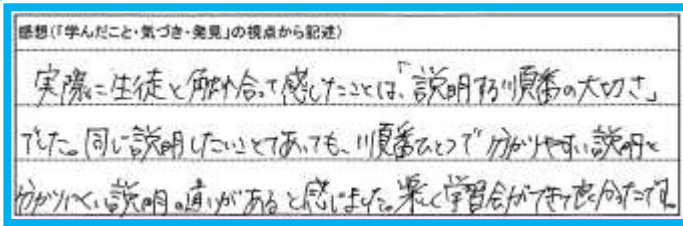 感想(「学んだこと・気づき・発見」の視点から記述)
実際に生徒と触れ合って感じたことは、「説明する順番の大切さ」
でした。同じ説明したいことであっても、順番ひとつで分かりやすい説明と
分かりにくい説明の違いがあると感じました。楽しく学習会ができて良かったです。